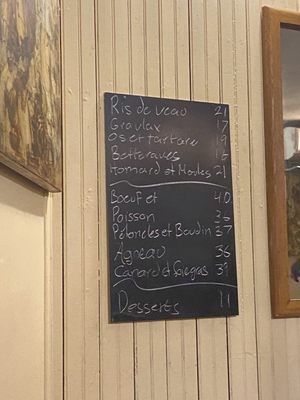 Ris de veau 21
Gravlax 17
Os et tartare 19
Betteraves 16
Homard et Morilles 21
Boeuf et 40
Poisson 36
Pétoncles et Boudin 37
Agneau 36
Canard et foie gras 39
Desserts 11